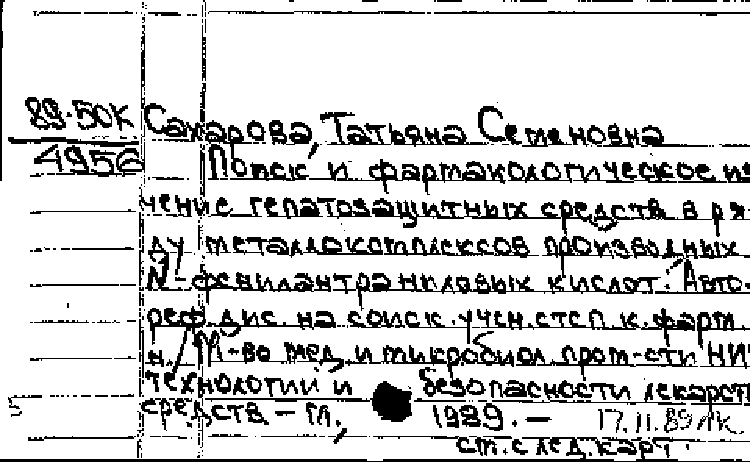 89-50К Сахарова, Татьяна Семеновна
4956 Поиск и фармакологическое из-
чение гепатозащитных средств в ря-
ду металлокомплексов производных
N-фенилантраниловых кислот: Авто-
реф. дис. на соиск. учен. степ. к. фарм.
н. / М-во мед. и микробиол. пром-сти НИ
технологии и безопасности лекарст
средств. - М., 1989. -
17.11.89
ст. след. карт.